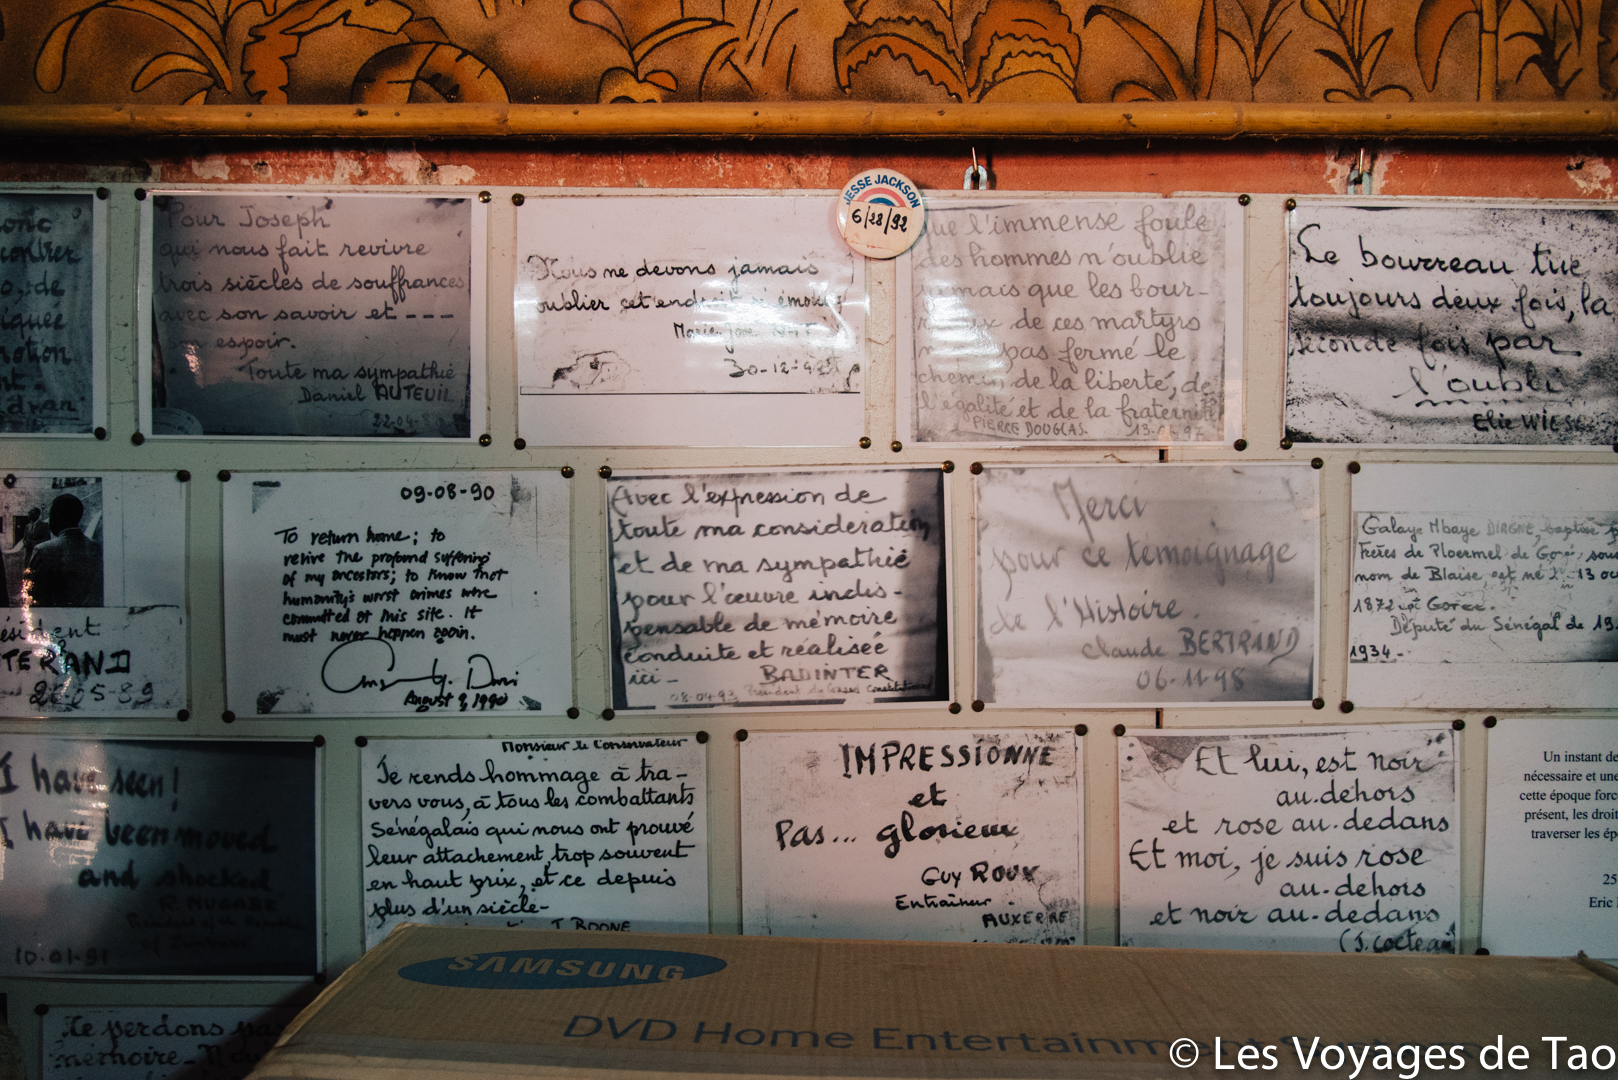 Pour Joseph
qui nous fait revivre
trois siècles de souffrances
avec son savoir et ---
son espoir.
Toute ma sympathie
Daniel AUTEUIL
22-04-
Nous ne devons jamais
oublier cet endroit si
30-12-
JESSE JACKSON
6/28/92
que l'immense foule
des hommes n'oublie
jamais que les bour-
reaux de ces martyrs
pas fermé le
chemin de la liberté, de
l'égalité et de la fraternité
PIERRE DOUGLAS. 13-
Le bourreau tue
toujours deux fois, la
seconde fois par
l'oubli
Elie WIESE
TERAND
26-05-89
09-08-90
To return home; to
revive the profound suffering
of my ancestors; to know that
humanity's worst crimes were
committed at this site. It
must never happen again.
August 9, 1990
Avec l'expression de
toute ma consideration
et de ma sympathie
pour l'œuvre indis-
pensable de mémoire
conduite et réalisée
ici -
BADINTER
08-04-93 Président du Conseil Constitutionnel
Merci
pour ce temoignage
de l'Histoire.
Claude BERTRAND
06-11-98
Galaye Mbaye DIAGNE, baptisé
Frères de Ploermel de Gorée, sous
nom de Blaise est né 13
1872 Gorée.
Député du Sénégal de 19
1934 -
I have seen!
I have been moved
and shocked
R. MUGABE
10-01-91
Monsieur le Conservateur
Je rends hommage à tra-
vers vous, à tous les combattants
Sénégalais qui nous ont prouvé
leur attachement, trop souvent
en haut prix, et ce depuis
plus d'un siècle-
T. BOONE
IMPRESSIONNE
et
Pas... glorieux
GUY ROUX
Entraîneur
AUXERRE
Et lui, est noir
au-dehors
et rose au-dedans
Et moi, je suis rose
au-dehors
et noir au-dedans
(J. Cocteau
Un instant de
nécessaire et une
cette époque forc
présent, les droit
traverser les ép
25
Eric
Ne perdons pas
mémoire-
SAMSUNG
DVD Home Entertainment
© Les Voyages de Tao